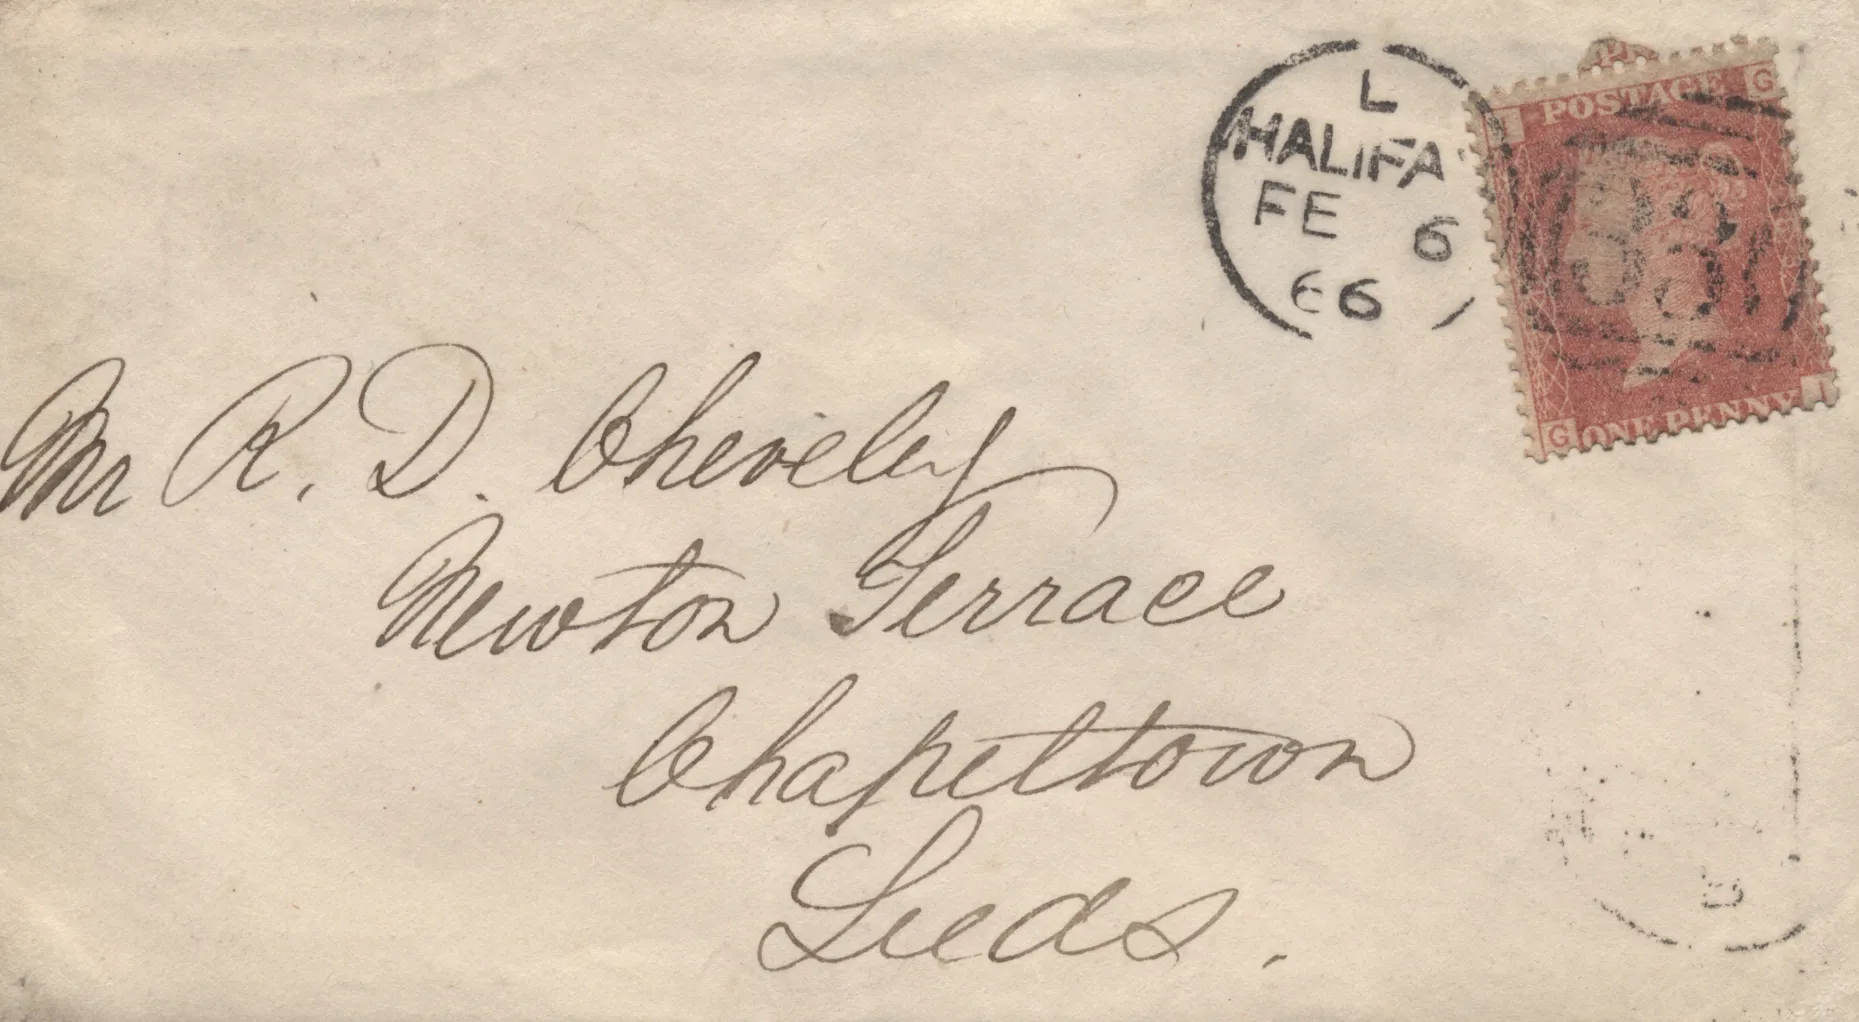 L
HALIFA
FE 6
66
POSTAGE
G
33
G
ONE PENNY
I
Mr R. D. Cheveley
Newton Terrace
Chapeltown
Leeds.